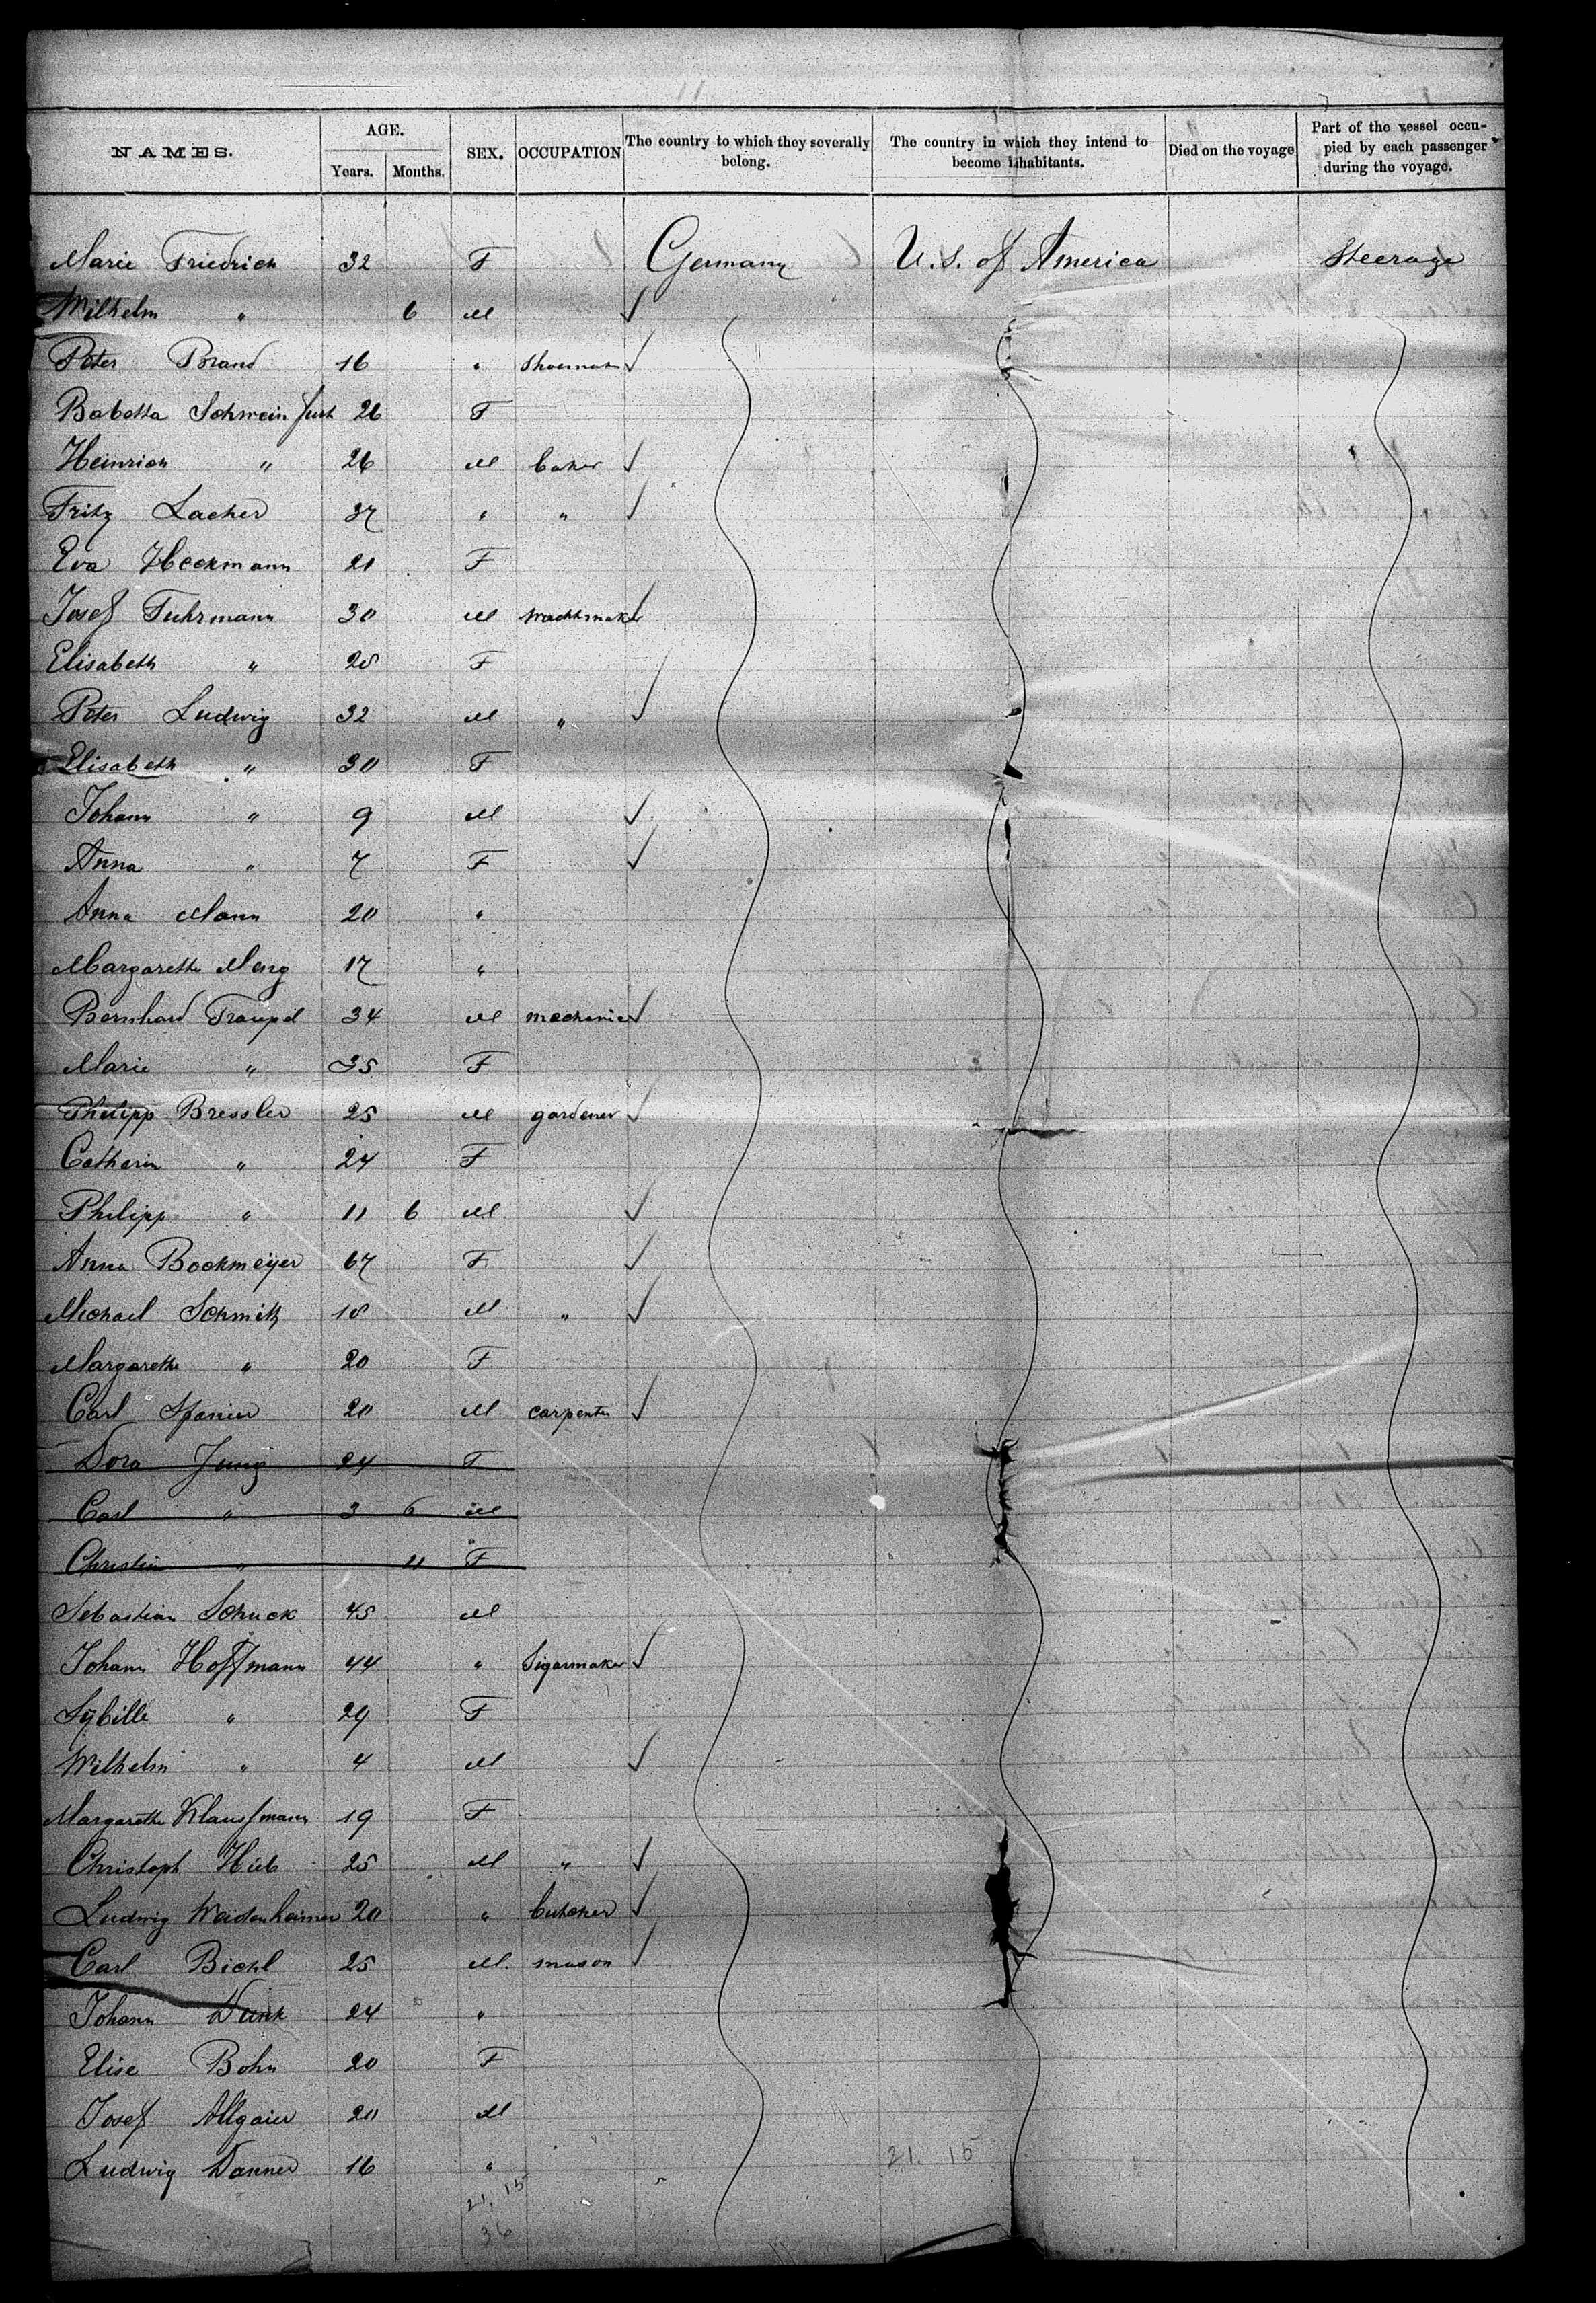 NAMES. AGE. Years. Months. SEX. OCCUPATION The country to which they severally belong. The country in which they intend to become inhabitants. Died on the voyage Part of the vessel occupied by each passenger during the voyage.
Marie Friedrich 32 F Germany U.S. of America Steerage
Wilhelm " 6 M
Peter Brand 16 "
Babetta Schweinfurt 26 F
Heinrich " 26 M baker
Fritz Lacher 37 " "
Eva Heckmann 21 F
Josef Fuhrmann 30 M wachtmaker
Elisabeth " 28 F
Peter Ludwig 32 M "
Elisabeth " 30 F
Johann " 9 M
Anna " 7 F
Anna Mann 20 "
Margarethe Meng 17 "
Bernhard Traupel 34 M mechanic
Marie " 35 F
Philipp Bressler 25 M gardener
Catharin " 24 F
Philipp " 11 6 M
Anna Bockmeÿer 67 F
Michael Schmitz 18 M "
Margarethe " 20 F
Carl Spanier 20 M carpenter
Dora Jung 24 F
Carl " 3 6 M
Christin " 11 F
Sebastian Schuck 45 M
Johann Hoffmann 44 " Sigarmaker
Sÿbille " 29 F
Wilhelm " 4 M
Margarethe 19 F
Christoph Hieb 25 M "
Ludwig Weidenheimer 20 " butcher
Carl Biehl 25 M. mason
Johann Dunk 24 "
Elise Bohn 20 F
Josef Allgaier 20 M
Ludwig Danner 16 "
21. 15
21. 15
36